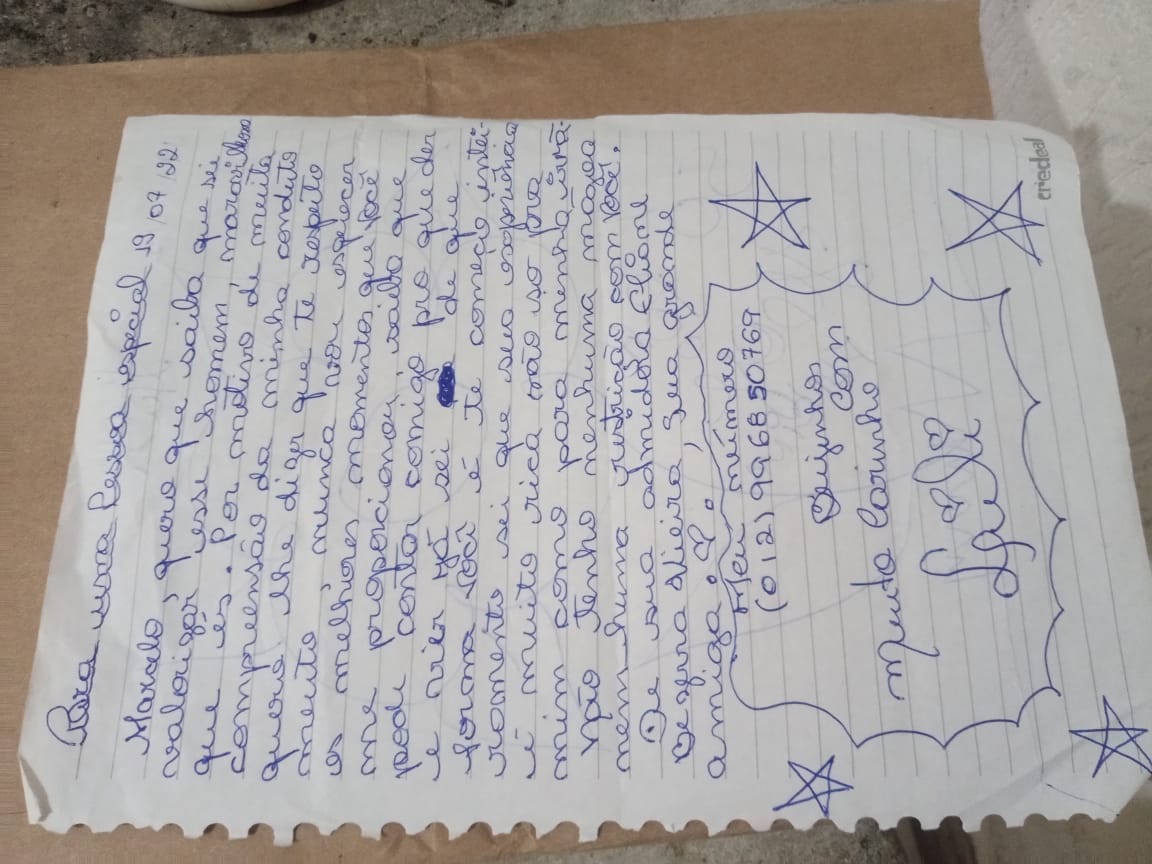 Para uma Pessoa espécial 19/07/22
Marcelo quero que saiba que sei
valorizar esse homem maravilhoso
que és. Por motivo de muita
compreensão da minha conduta
quero lhe dizer que te respeito
muito nunca vou esquecer
os melhores momentos que você
me proporcionou, saiba que
pode contar comigo pro que der
e vier já sei de que
forma você é te conheço intei-
ramente sei que sua experiência
é muito rica não só pra
mim como para minha irmã.
Não tenho nenhuma magoa
nem huma com você.
De sua admidora
Bezerra Vieira, sua grande
amiga.
Meu número
(012) 996850769
Beijinhos
Com
Muito Carinho
credeal